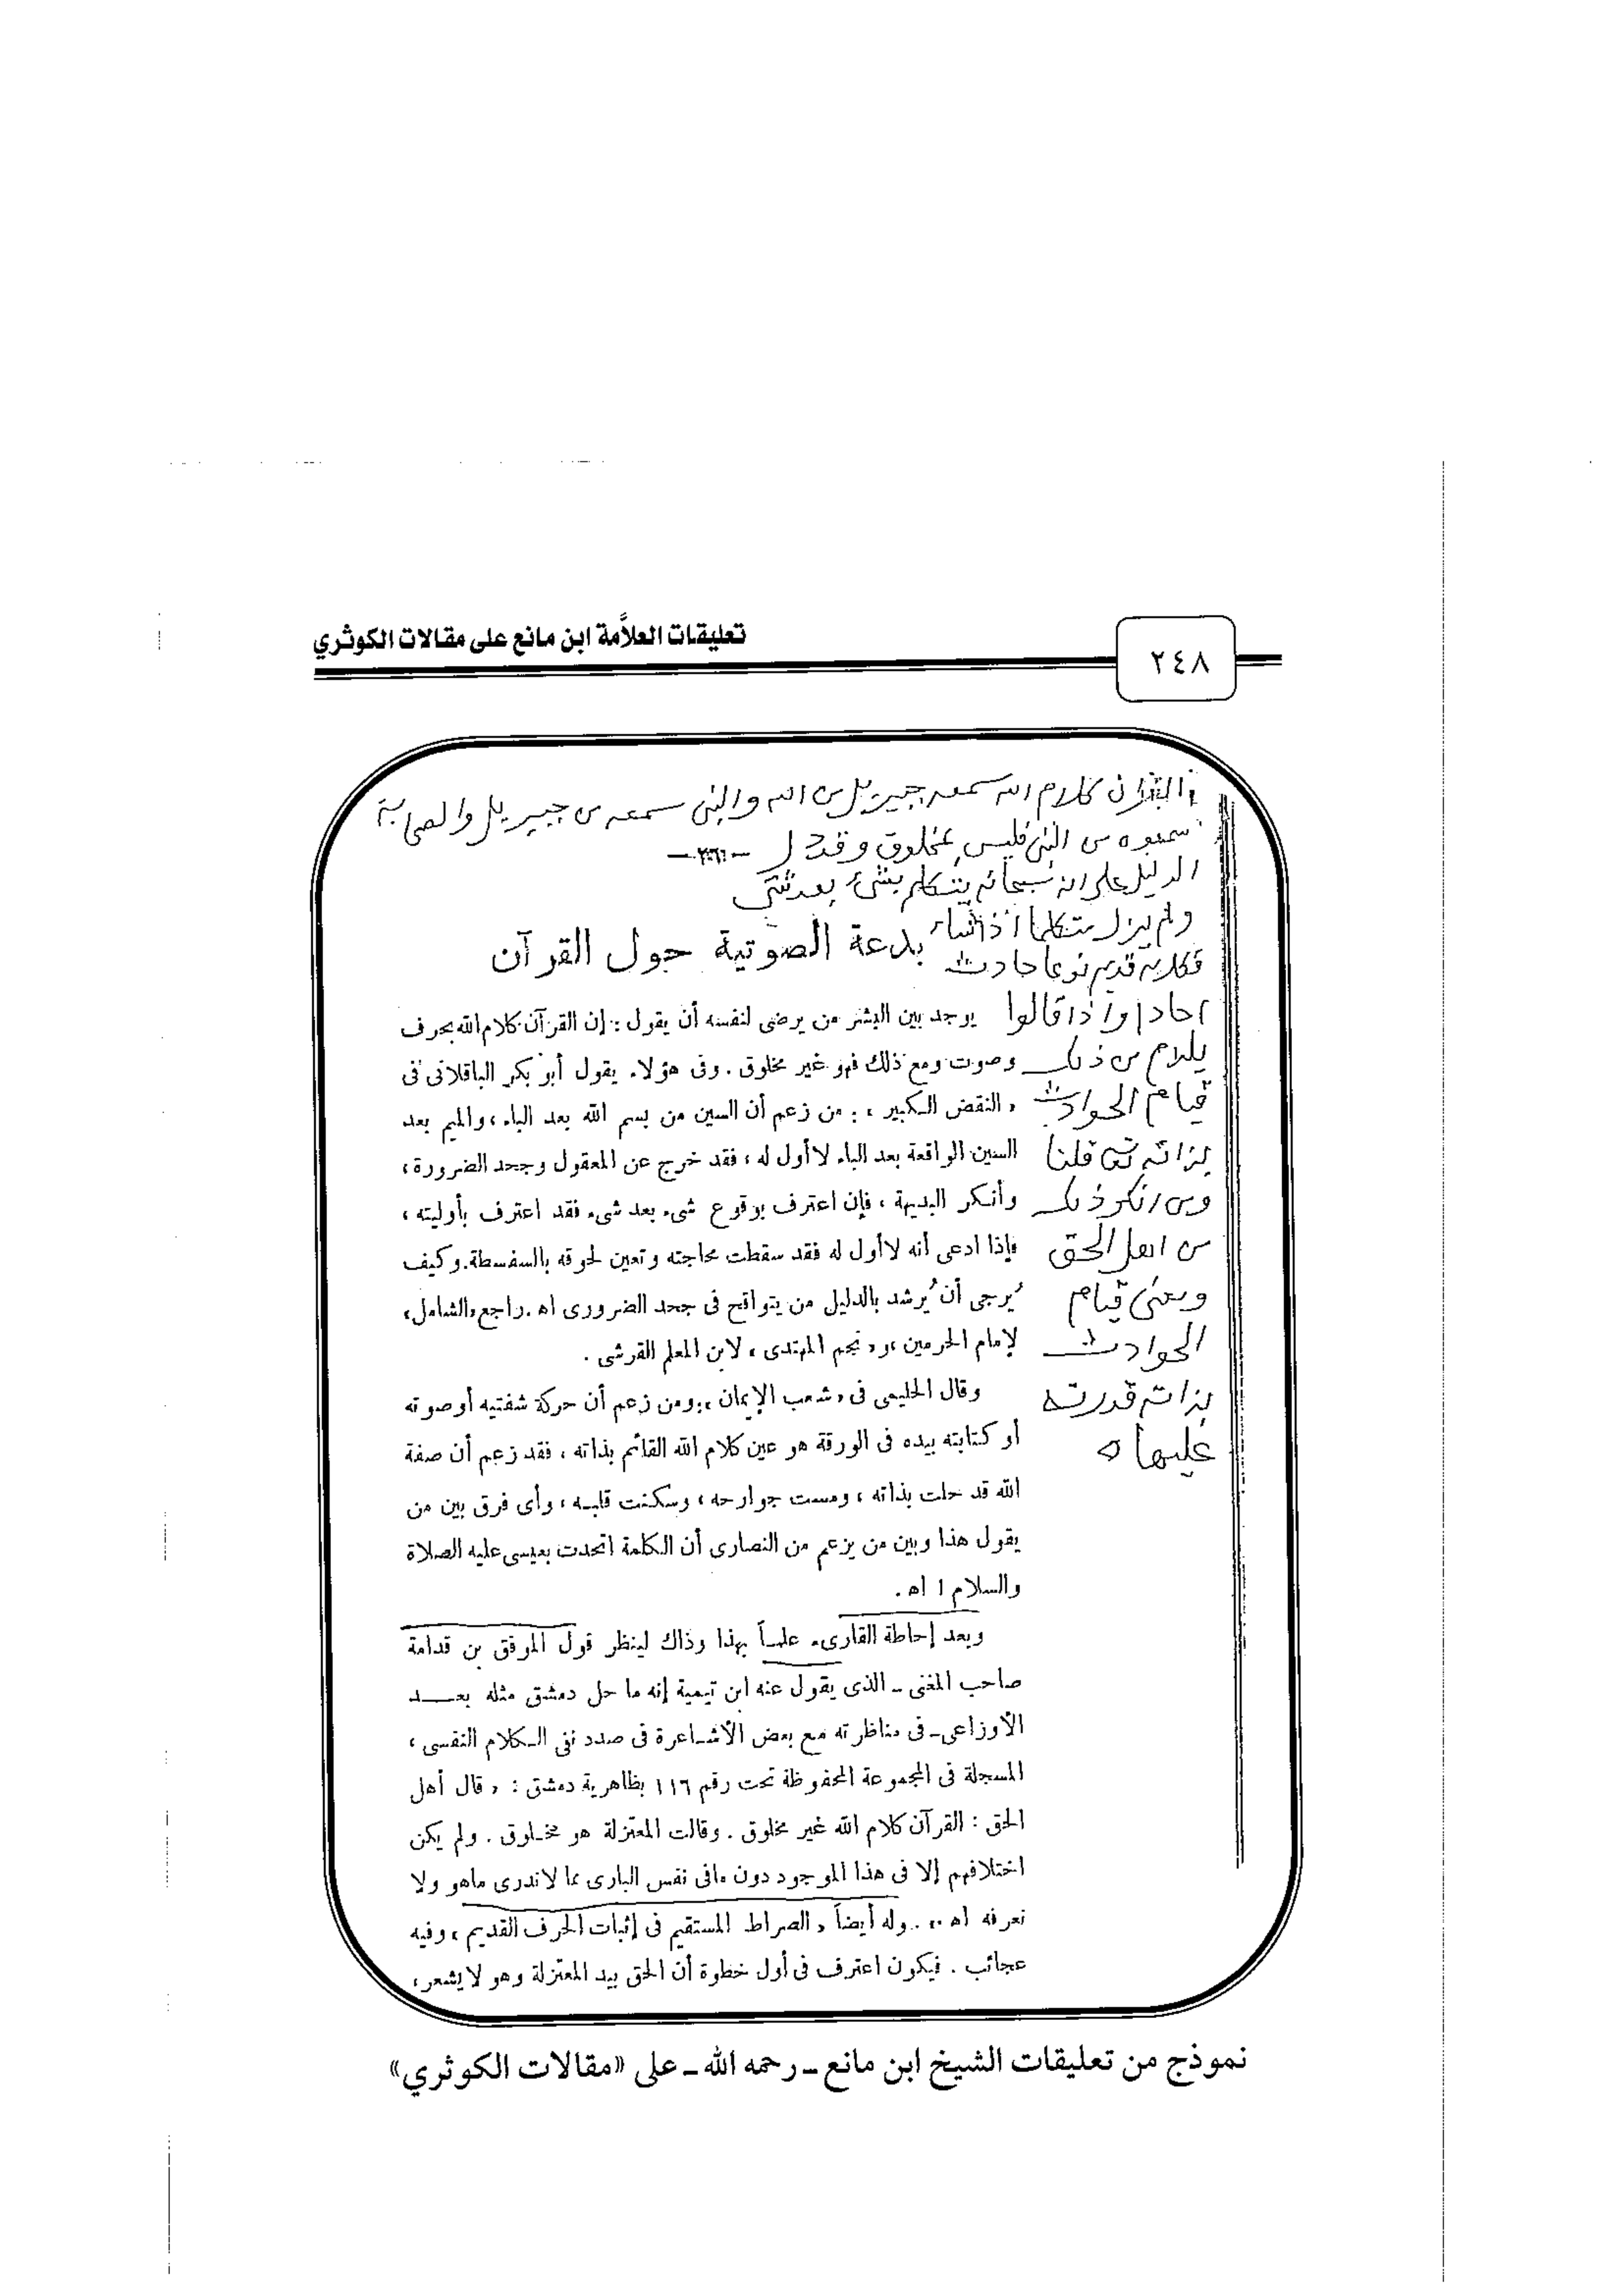 ٢٤٨
تعليقات العلاَّمة ابن مانع على مقالات الكوثري
القرآن كلام الله سمعه جبريل من الله والنبي سمعه من جبريل والصحابة
سمعوه من النبي فليس بمخلوق وقد دل
الدليل على انه سبحانه يتكلم بشيء بعد شيء
ولم يزل متكلما اذا شاء
فكلامه قديم نوعا حادث
احادا واذا قالوا
يلزم من ذلك
قيام الحوادث
بذاته تعالى قلنا
ومن انكر ذلك
من اهل الحق
ومعنى قيام
الحوادث
بذاته قدرته
عليها
— ٢٦ —
بدعة الصوتية حول القرآن
يوجد بين البشر من يرضى لنفسه أن يقول : إن القرآن كلام الله بحرف
وصوت ومع ذلك فهو غير مخلوق . وفى هؤلاء يقول أبو بكر الباقلانى فى
« النقض الكبير » : من زعم أن السين من بسم الله بعد الباء ، والميم بعد
السين الواقعة بعد الباء لا أول له ، فقد خرج عن المعقول وجحد الضرورة ،
وأنكر البديهة ، فإن اعترف بوقوع شىء بعد شىء فقد اعترف بأوليته ،
فإذا ادعى أنه لا أول له فقد سقطت محاجته وتعين لحوقه بالسفسطة . وكيف
يُرجى أن يُرشد بالدليل من يتواقح فى جحد الضرورى اه . راجع « الشامل »
لإمام الحرمين ، و« نجم المهتدى » لابن المعلم القرشى .
وقال الحليمى فى « شعب الإيمان » : ومن زعم أن حركة شفتيه أو صوته
أو كتابته بيده فى الورقة هو عين كلام الله القائم بذاته ، فقد زعم أن صفة
الله قد حلت بذاته ، ومست جوارحه ، وسكنت قلبه ، وأى فرق بين من
يقول هذا وبين من يزعم من النصارى أن الكلمة اتحدت بعيسى عليه الصلاة
والسلام ! اه .
وبعد إحاطة القارىء علماً بهذا وذاك لينظر قول الموفق بن قدامة
صاحب المغنى ـ الذى يقول عنه ابن تيمية إنه ما حل دمشق مثله بعـــد
الأوزاعى ـ فى مناظرته مع بعض الأشاعرة فى صدد نفى الكلام النفسى ،
المسجلة فى المجموعة المحفوظة تحت رقم ١١٦ بظاهرية دمشق : « قال أهل
الحق : القرآن كلام الله غير مخلوق . وقالت المعتزلة هو مخلوق . ولم يكن
اختلافهم إلا فى هذا الموجود دون مافى نفس البارى مما لاندرى ماهو ولا
نعرفه اه » . وله أيضاً « الصراط المستقيم فى إثبات الحرف القديم » وفيه
عجائب . فيكون اعترف فى أول خطوة أن الحق بيد المعتزلة وهو لا يشعر ،
نموذج من تعليقات الشيخ ابن مانع ـ رحمه الله ـ على «مقالات الكوثري»